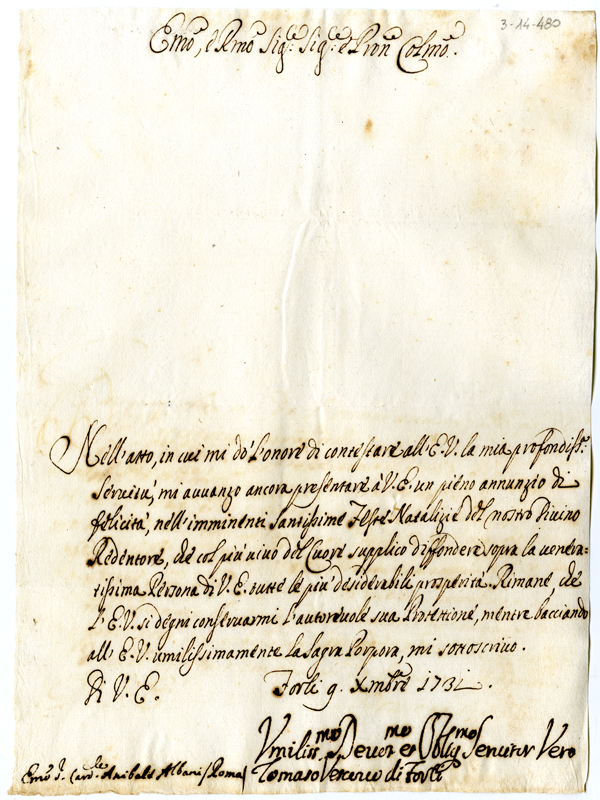 3-14-480
Emo, e Rmo Sigre Sigre e Pron Colmo.
Nell'atto, in cui mi dò l'onore di contestare all'E.V. la mia profondissa.
servitù, mi avvanzo ancora presentare à V.E. un pieno annunzio di
felicità, nell'imminenti santissime Feste Natalizie del nostro Divino
Redentore, che col più vivo del Cuore supplico diffondere sopra la venera=
tissima Persona di V.E. tutte le più desiderabili prosperità. Rimane che
l'E.V. si degni conservarmi l'autorevole sua Protettione, mentre bacciando
all'E.V. umilissimamente la Sagra Porpora, mi sottoscrivo.
Di V.E. Forli 9. Xmbre 1731.
Umilissmo Devotmo et Obligmo Servitor Vero
Emo S. Cardle Anibale Albani / Roma / Tomaso Vescovo di Forli